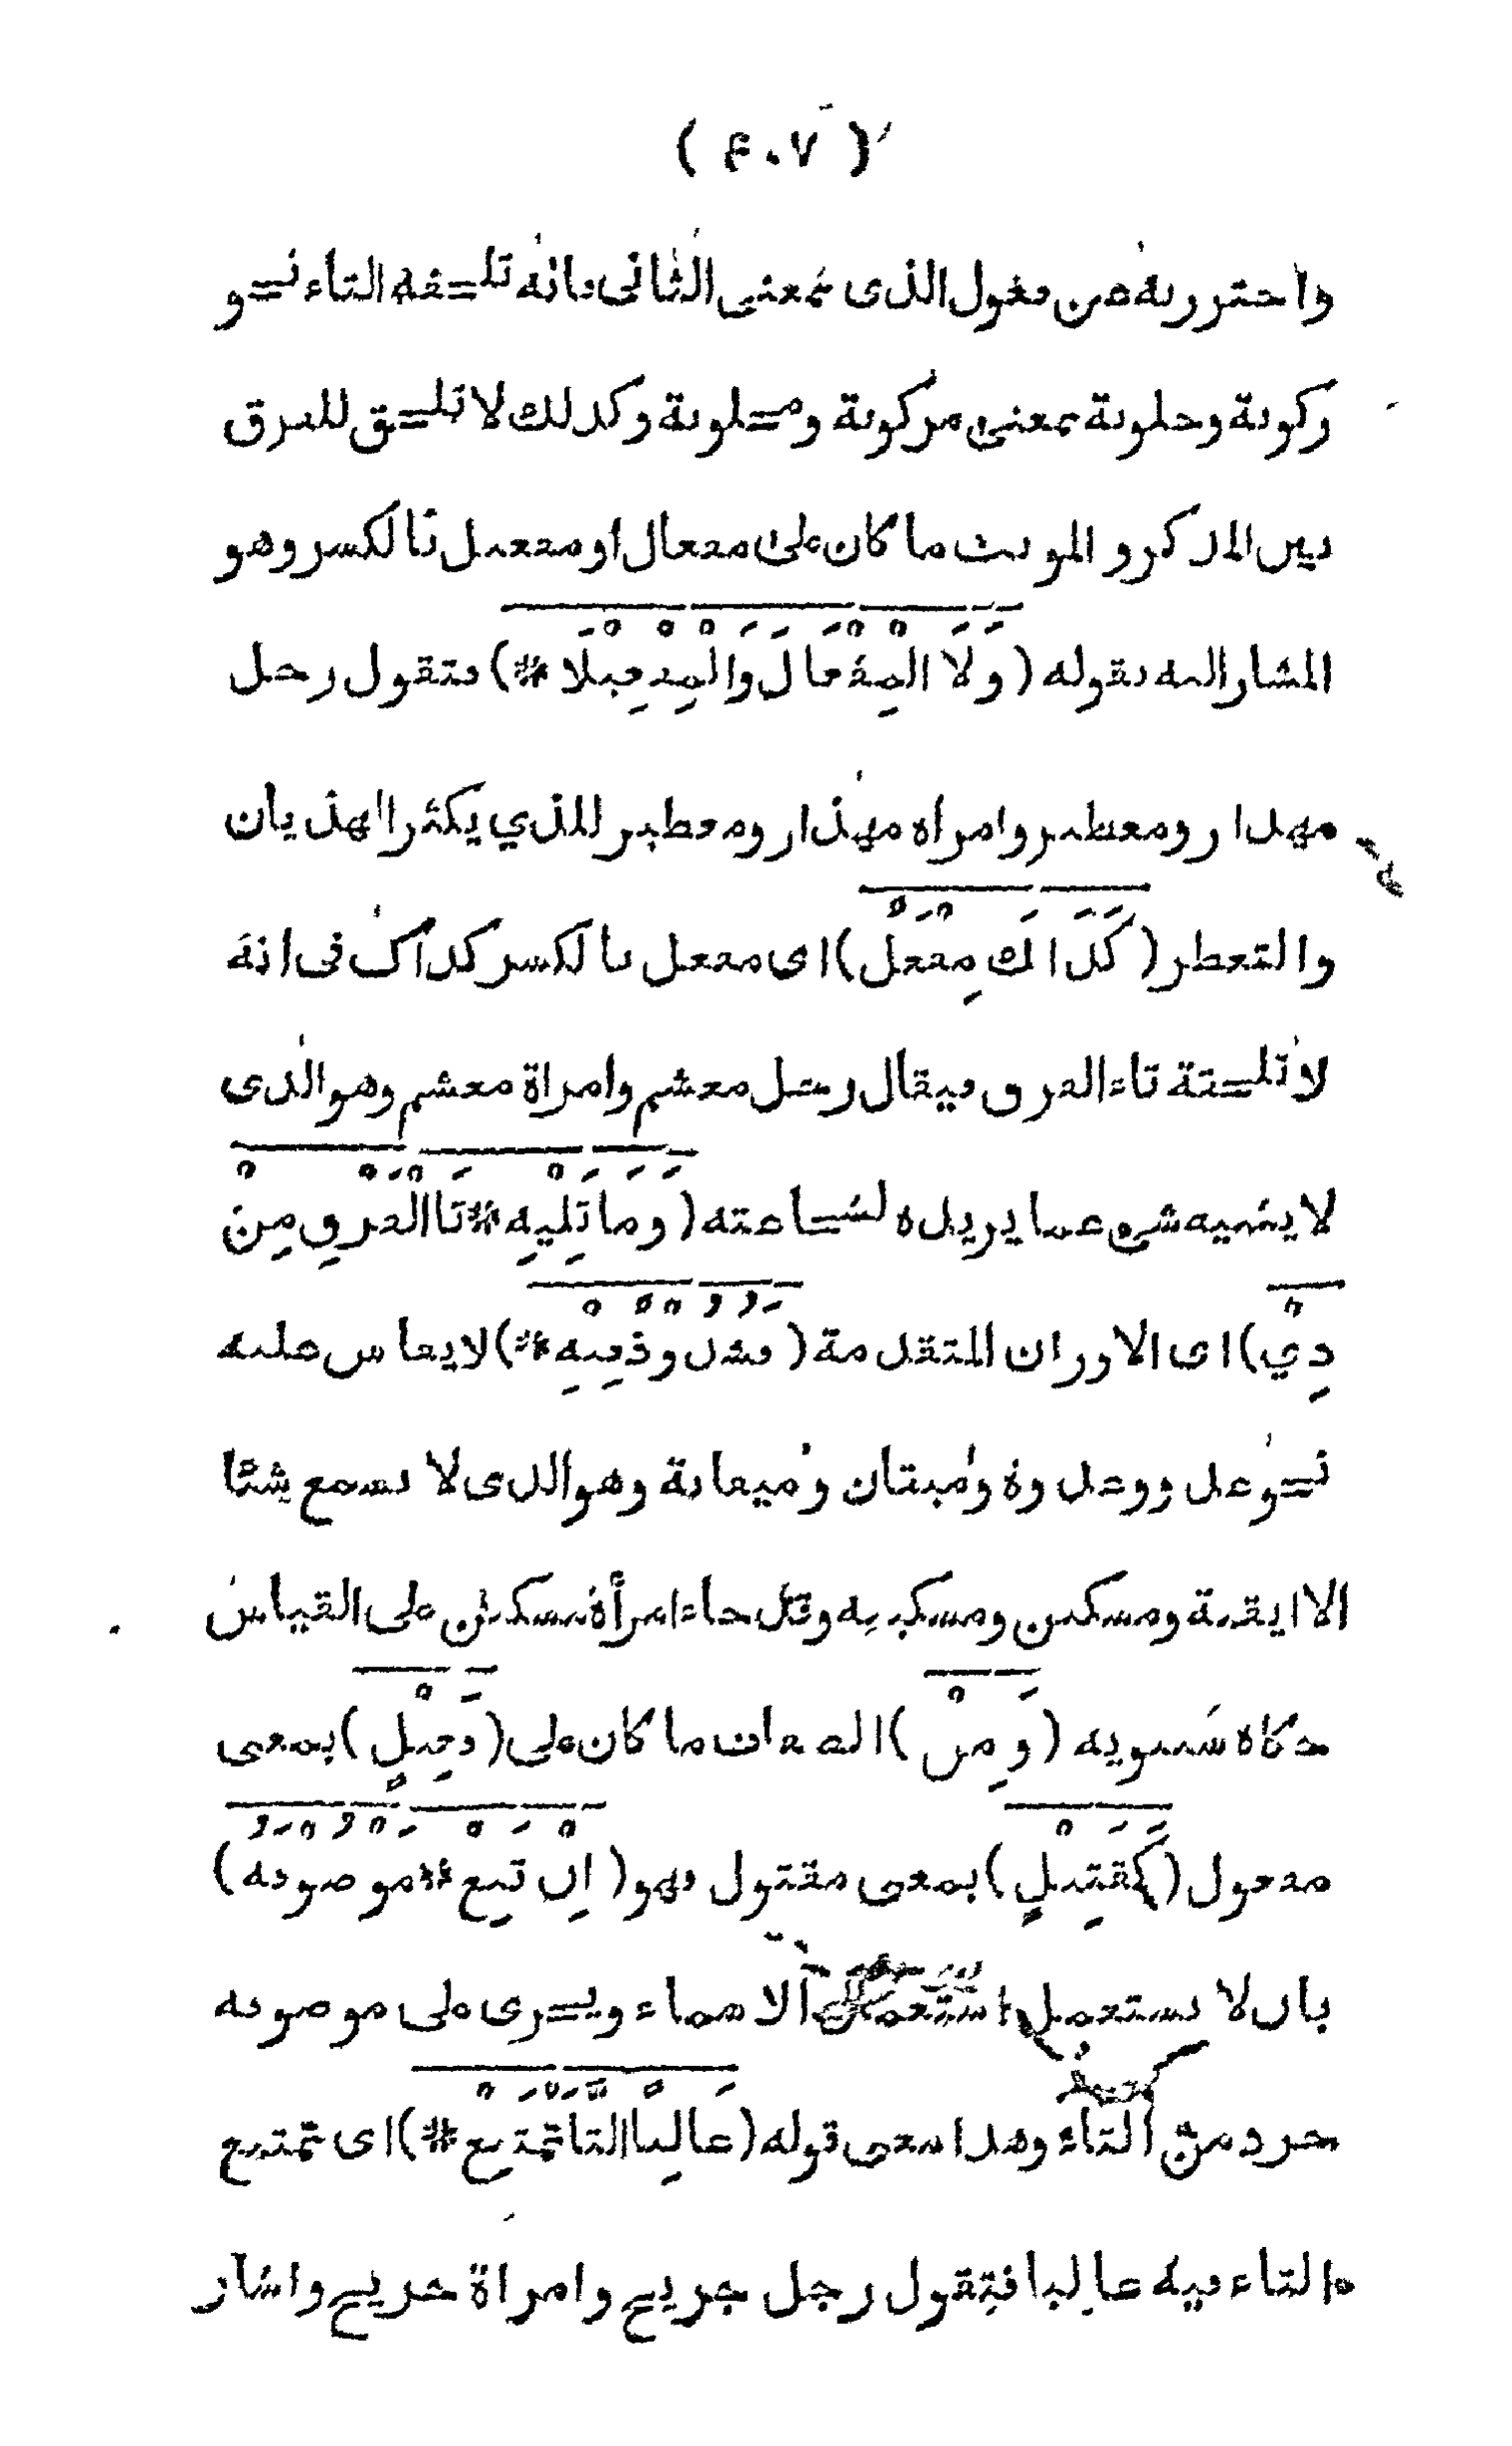 ( ٤٠٧ )
واحترز به من فعول الذى بمعنى الثانى فانه تلحقه التاء نحو
ركوبة وحلوبة بمعنى مركوبة ومحلوبة وكذلك لا تلحق للفرق
بين المذكر والمونث ما كان على مفعال او مفعيل بالكسر وهو
المشار اليه بقوله (وَلَا الْمِفْعَالَ وَالْمِفْعِيلَا *) فتقول رجل
مهذار ومعطير وامراه مهذار ومعطير للذي يكثر الهذيان
والتعطر (كَذَاكَ مِفْعَلٌ) اى مفعل بالكسر كذاك فى انه
لا تلحقه تاء الفرق فيقال رجل مغشم وامراة مغشم وهو الذى
لا يثنيه شىء عما يريده لشجاعته (وَمَا تَلِيهِ * تَا الْفَرْقِ مِنْ
ذِي) اى الاوزان المتقدمة (فَشُذُوذٌ فِيهِ *) لا يقاس عليه
نحو عدو وعدوة وميقان وميقانة وهو الذى لا يسمع شئا
الا ايقنه ومسكين ومسكينه وقد جاء امرأة مسكين على القياس
حكاه سيبويه (وَمِنْ) الصفات ما كان على (فَعِيلٍ) بمعنى
مفعول (كَقَتِيلٍ) بمعنى مقتول فهو (اِنْ تَبِعَ * مَوْصُوفَهُ)
بان لا يستعمل استعمال الاسماء ويجرى على موصوفه
مجرد من التاء وهذا معنى قوله (غَالِبًا التَّا تَمْتَنِعْ *) اى تمتنع
التاء فيه غالبا فتقول رجل جريح وامراة جريح واشار